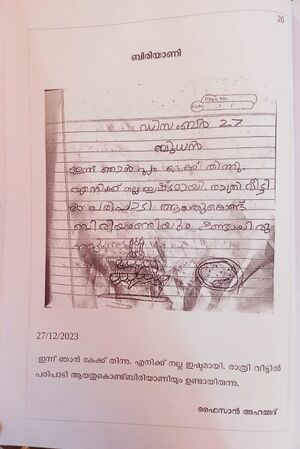 26
ബിരിയാണി
Page No:
Date: / /
ഡിസംബർ 27
ബുധൻ
ഇന്ന് ഞാൻ കേക്ക് തിന്നു.
എനിക്ക് നല്ല ഇഷ്ടമായി. രാത്രി വീട്ടി
ൽ പരിപാടി ആയതുകൊണ്ട്
ബിരിയാണിയും ഉണ്ടായിരു
ന്നു.
27/12/2023
ഇന്ന് ഞാൻ കേക്ക് തിന്നു. എനിക്ക് നല്ല ഇഷ്ടമായി. രാത്രി വീട്ടിൽ
പരിപാടി ആയതുകൊണ്ട്ബിരിയാണിയും ഉണ്ടായിരുന്നു.
ഫൈസാൻ അഹമ്മദ്